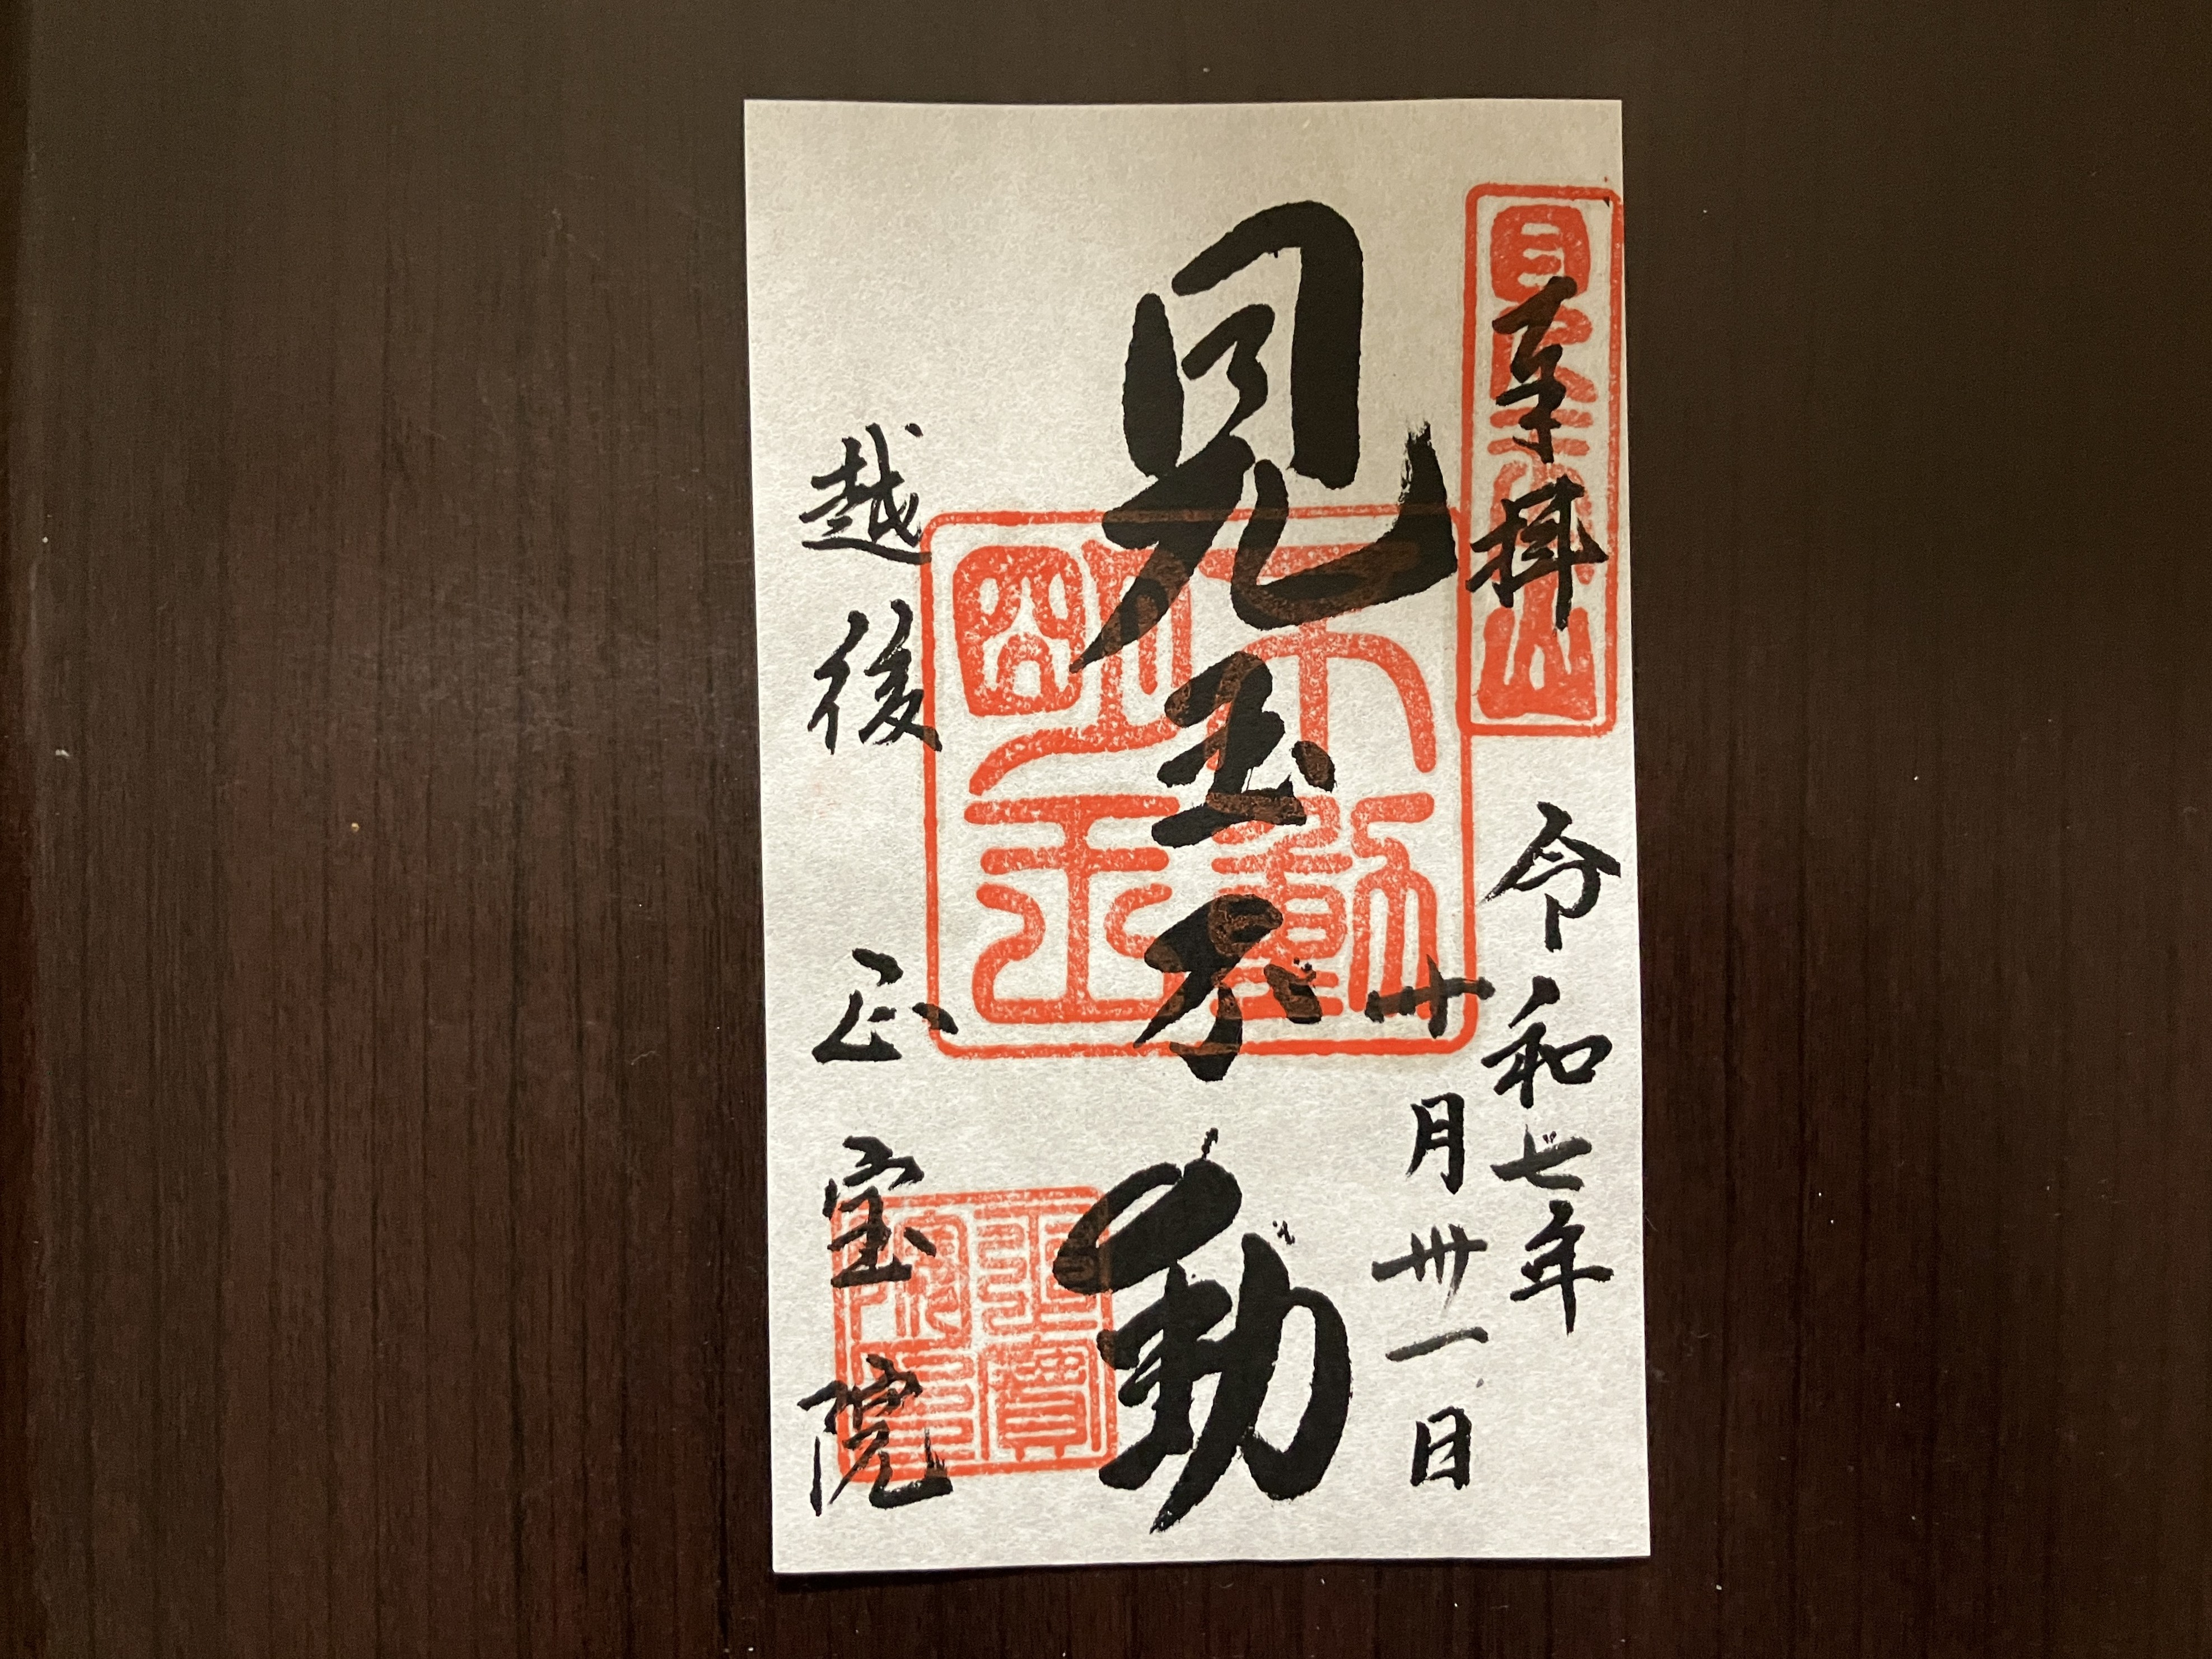 奉拝
令和七年
十月卅一日
見玉不動
越後 正宝院
不動明王
正寶院印